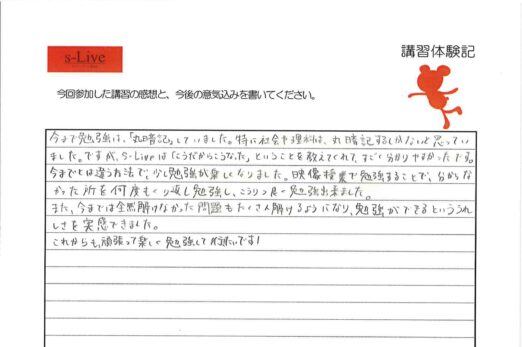 s-Live
講習体験記
今回参加した講習の感想と、今後の意気込みを書いてください。
今まで勉強は、「丸暗記」していました。特に社会や理科は、丸暗記するしかないと思ってい
ました。ですが、s-Liveは「こうだからこうなった」ということを教えてくれて、すごく分かりやすかったです。
今までとは違う方法で、少し勉強が楽しくなりました。映像授業で勉強することで、分からな
かった所を何度もくり返し勉強し、こうりつ良く勉強出来ました。
また、今までは全然解けなかった問題もたくさん解けるようになり、勉強ができるといううれ
しさを実感できました。
これからも、頑張って楽しく勉強して行きたいです!